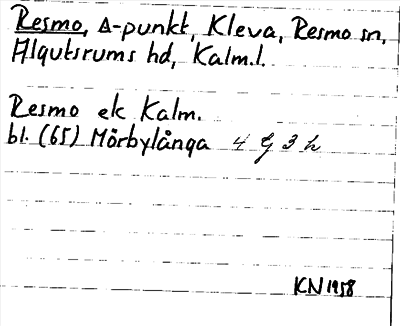 Resmo, Δ-punkt, Kleva, Resmo sn,
Algutsrums hd, Kalm.l.
Resmo ek Kalm.
bl. (65) Mörbylånga 4 G 3 h
KN 1958